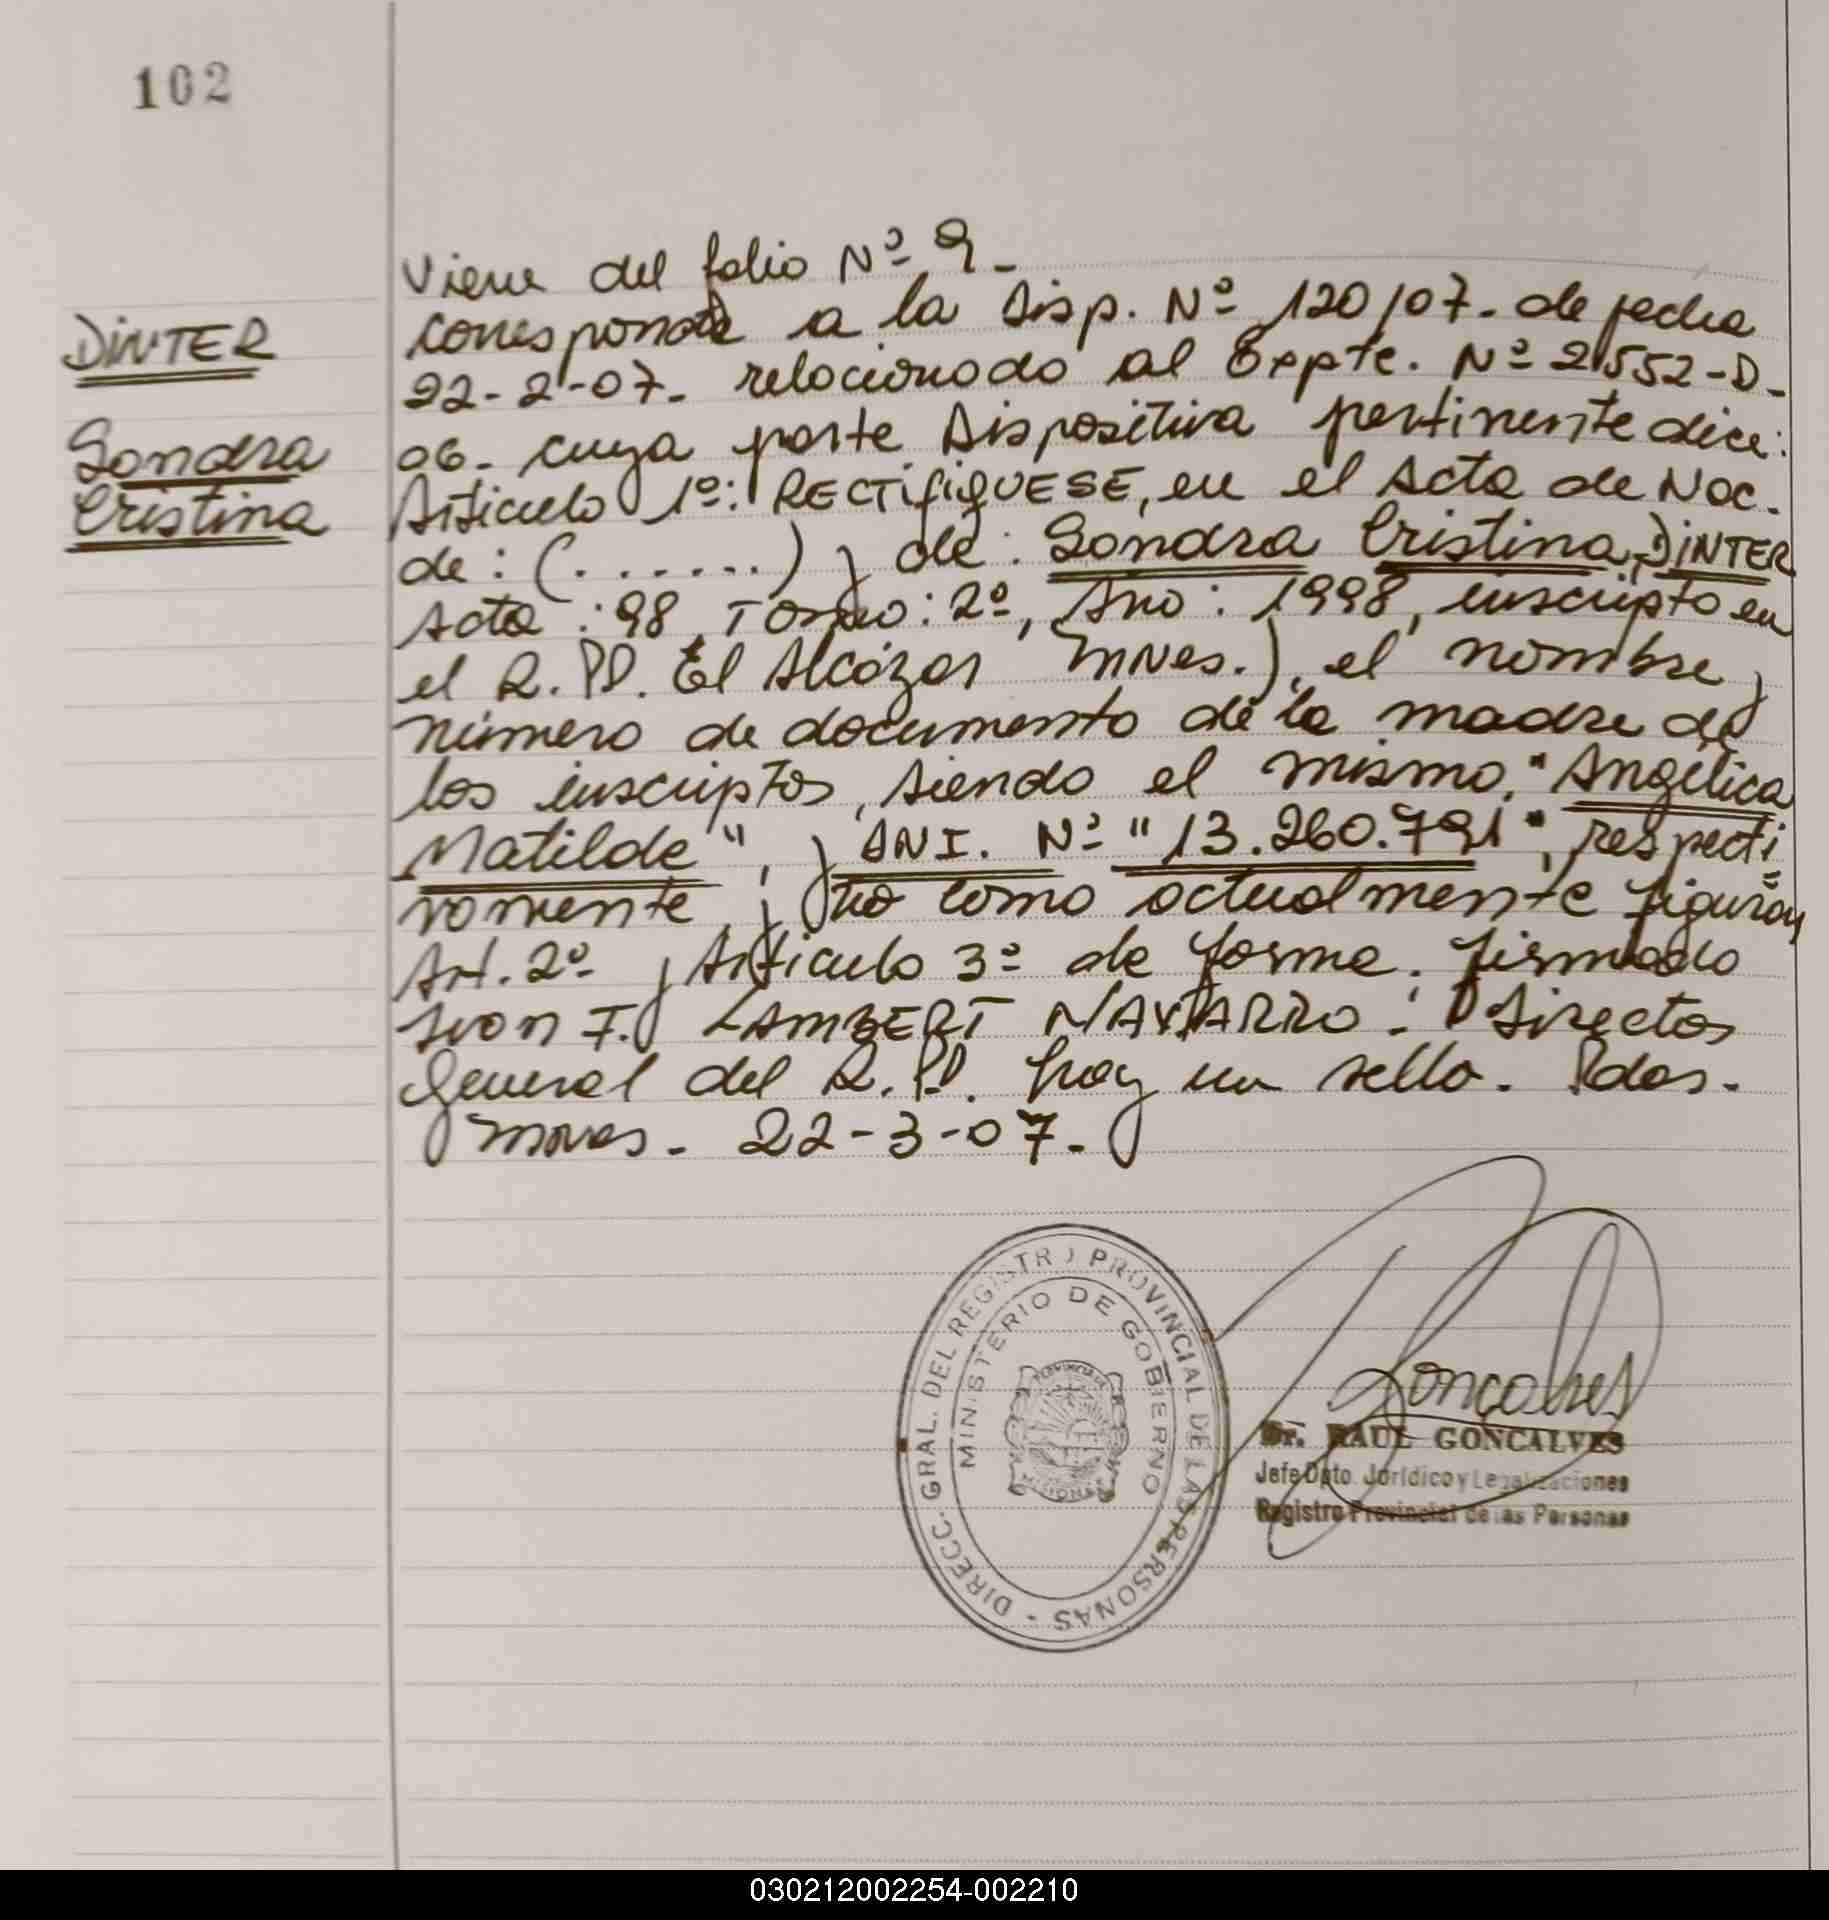 102
DiNTER
Sandra
Cristina
Viene del folio Nº 9-
Corresponde a la Disp. Nº 120/07. de fecha
22-2-07- relacionado al Expte. Nº 2552-D-
06- cuya parte Dispositiva pertinente dice:
Articulo 1º: RECTifiqUESE, en el Acta de Nac.
de: (.......) y de: Sandra Cristina DiNTER
Acta: 98, Tomo: 2º, Año: 1998, inscripto en
el R.PP. El Alcázar Mnes.), el nombre y
número de documento de la madre de
los inscriptos, siendo el mismo, "Angélica
Matilde", y DNI. Nº "13.260.791", respecti=
vamente, y no como actualmente figuran
Art. 2º y Articulo 3º de forma. firmado
Ivan F. LAMBERT NAVARRO. Director
General del R.PP. hay un sello. Pdas.
Mnes. 22-3-07.
DIRECC. GRAL. DEL REGISTRO PROVINCIAL DE LAS PERSONAS -
MINISTERIO DE GOBIERNO
PROVINCIA DE
MISIONES
Goncalves
Dr. RAUL GONCALVES
Jefe Dpto. Jurídico y Legalizaciones
Registro Provincial de las Personas
030212002254-002210